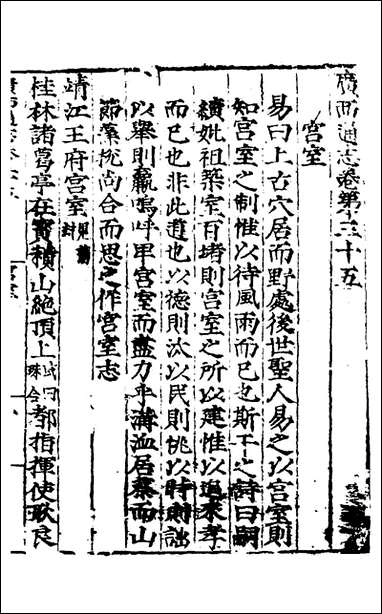 廣西通志卷第三十五
宮室
易曰上古穴居而野處後世聖人易之以宮室則
知宮室之制惟以待風雨而已也斯干之詩曰嗣
續妣祖築室百堵則宮室之所以建惟以追來孝
而已也非此道也以德則汰以民則恌以時則詘
以舉則羸嗚呼卑宮室而盡力乎溝洫居蔡而山
節藻梲尚合而思之作宮室志
靖江王府宮室
桂林諸葛亭在寶積山絕頂上 都指揮使耿良